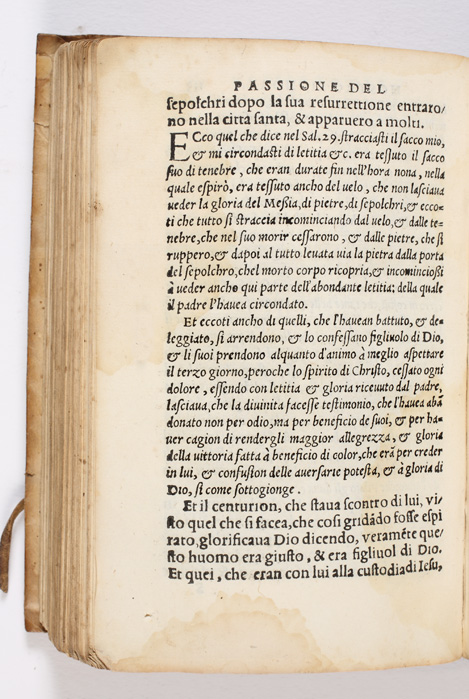 PASSIONE DEL
sepolchri dopo la sua resurrettione entraro/
no nella citta santa, & apparuero a molti.
ECco quel che dice nel Sal. 29. stracciasti il sacco mio,
& mi circondasti di letitia &c. era tessuto il sacco
suo di tenebre, che eran durate fin nell'hora nona, nella
quale espirò, era tessuto ancho del uelo, che non lasciaua
ueder la gloria del Meßia, di pietre, di sepolchri, & ecco-
ti che tutto si straccia incominciando dal uelo, & dalle te-
nebre, che nel suo morir cessarono, & dalle pietre, che si
ruppero, & dapoi al tutto leuata uia la pietra dalla porta
del sepolchro, chel morto corpo ricopria, & incominciossi
à ueder anche qui parte dell'abondante letitia; della quale
il padre l'hauea circondato.
Et eccoti ancho di quelli, che l'hauean battuto, & de-
leggiato, si arrendono, & lo confessano figliuolo di Dio,
& li suoi prendono alquanto d'animo à meglio aspettare
il terzo giorno, peroche lo spirito di Christo, cessato ogni
dolore, essendo con letitia & gloria riceuuto dal padre,
lasciaua, che la diuinita facesse testimonio, che l'hauea abā
donato non per odio, ma per beneficio de suoi, & per ha-
uer cagion di rendergli maggior allegrezza, & gloria
della uittoria fatta à beneficio di color, che erā per creder
in lui, & confusion delle auersarie potestà, & à gloria di
Dio, si come sottogionge.
Et il centurion, che staua scontro di lui, vi/
sto quel che si facea, che cosi gridādo fosse espi
rato, glorificaua Dio dicendo, veraméte que/
sto huomo era giusto, & era figliuol di Dio.
Et quei, che eran con lui alla custodia di Iesu,